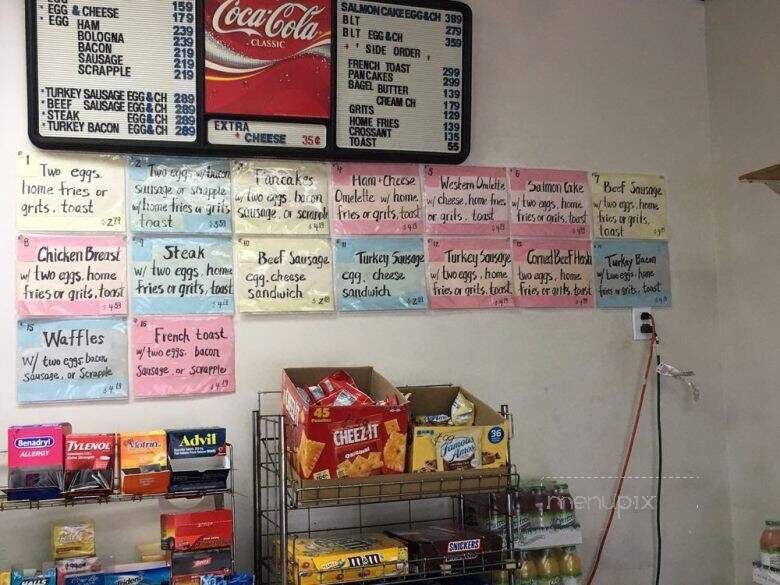 EGG & CHEESE 159
EGG HAM 179
BOLOGNA 239
BACON 239
SAUSAGE 219
SCRAPPLE 219
TURKEY SAUSAGE EGG & CH 289
BEEF SAUSAGE EGG & CH 289
STEAK 289
TURKEY BACON EGG & CH 289
Coca-Cola
CLASSIC
EXTRA CHEESE 35¢
SALMON CAKE EGG & CH 389
BLT 279
BLT EGG & CH 359
SIDE ORDER
FRENCH TOAST 299
PANCAKES 299
BAGEL BUTTER 139
CREAM CH 179
GRITS 129
HOME FRIES 139
CROSSANT 135
TOAST 55
1
Two eggs.
home fries or
grits. toast
2
Two eggs w/ bacon
sausage or scrapple
w/home fries or grits
toast
Pancakes
w/ two eggs, bacon
sausage, or scrapple
4
Ham & Cheese
Omelette w/ home
fries or grits, toast
5
Western Omelette
w/ cheese, home fries
or grits, toast
6
Salmon Cake
w/ two eggs, home
fries or grits, toast
7
Beef Sausage
w/ two eggs, home
fries or grits,
toast
8
Chicken Breast
w/ two eggs, home
fries or grits, toast
9
Steak
w/ two eggs, home
fries or grits, toast
10
Beef Sausage
egg, cheese
sandwich
11
Turkey Sausage
egg, cheese
sandwich
12
Turkey Sausage
w/ two eggs, home
fries or grits, toast
13
Corned Beef Hash
two eggs, home
fries or grits, toast
Turkey Bacon
w/ two eggs, home
fries or grits, toast
15
Waffles
w/ two eggs bacon
Sausage, or Scrapple
16
French toast
w/ two eggs. bacon
Sausage, or scrapple
Benadryl
ALLERGY
TYLENOL
Motrin
Advil
45
CHEEZ-IT
Original
Famous Amos
36
m&m's
SNICKERS
HALLS
Trident
menupix